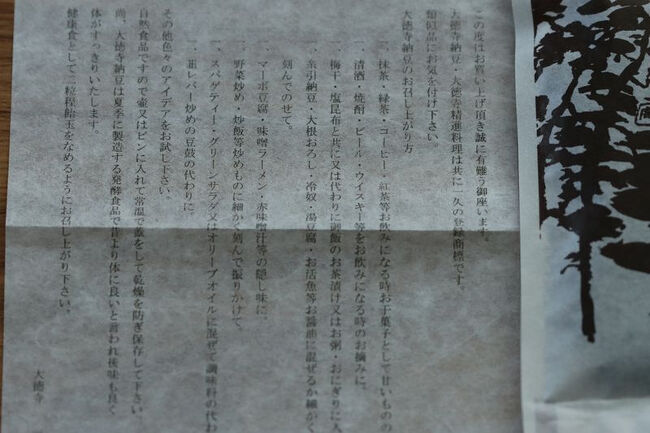 この度はお買い上げ頂き誠に有難う御座います。
大徳寺納豆・大徳寺精進料理は共に一久の登録商標です。
類似品にお気を付け下さい。
大徳寺納豆のお召し上がり方
一、抹茶・緑茶・コーヒー・紅茶等お飲みになる時お干菓子として甘いものの
一、清酒・焼酎・ビール・ウイスキー等をお飲みになる時のお摘みに。
一、梅干・塩昆布と共に又は代わりに御飯のお茶漬け又はお粥・おにぎりに入
一、糸引納豆・大根おろし・冷奴・湯豆腐・お活魚等お醤油に混ぜるか細かく
刻んでのせて。
一、マーボ豆腐・味噌ラーメン・赤味噌汁等の隠し味に。
一、野菜炒め・炒飯等炒めものに細かく刻んで振りかけて。
一、スパゲティー・グリーンサラダ又はオリーブオイルに混ぜて調味料の代わ
一、韮レバー炒めの豆鼓の代わりに。
その他色々のアイデアをお試し下さい。
自然食品ですので壷又はビンに入れて常温で蓋をして乾燥を防ぎ保存して下さい。
尚、大徳寺納豆は夏季に製造する発酵食品で昔より体に良いと言われ後味も良く
体がすっきりいたします。
健康食として一粒程飴玉をなめるようにお召し上がり下さい。
大徳寺